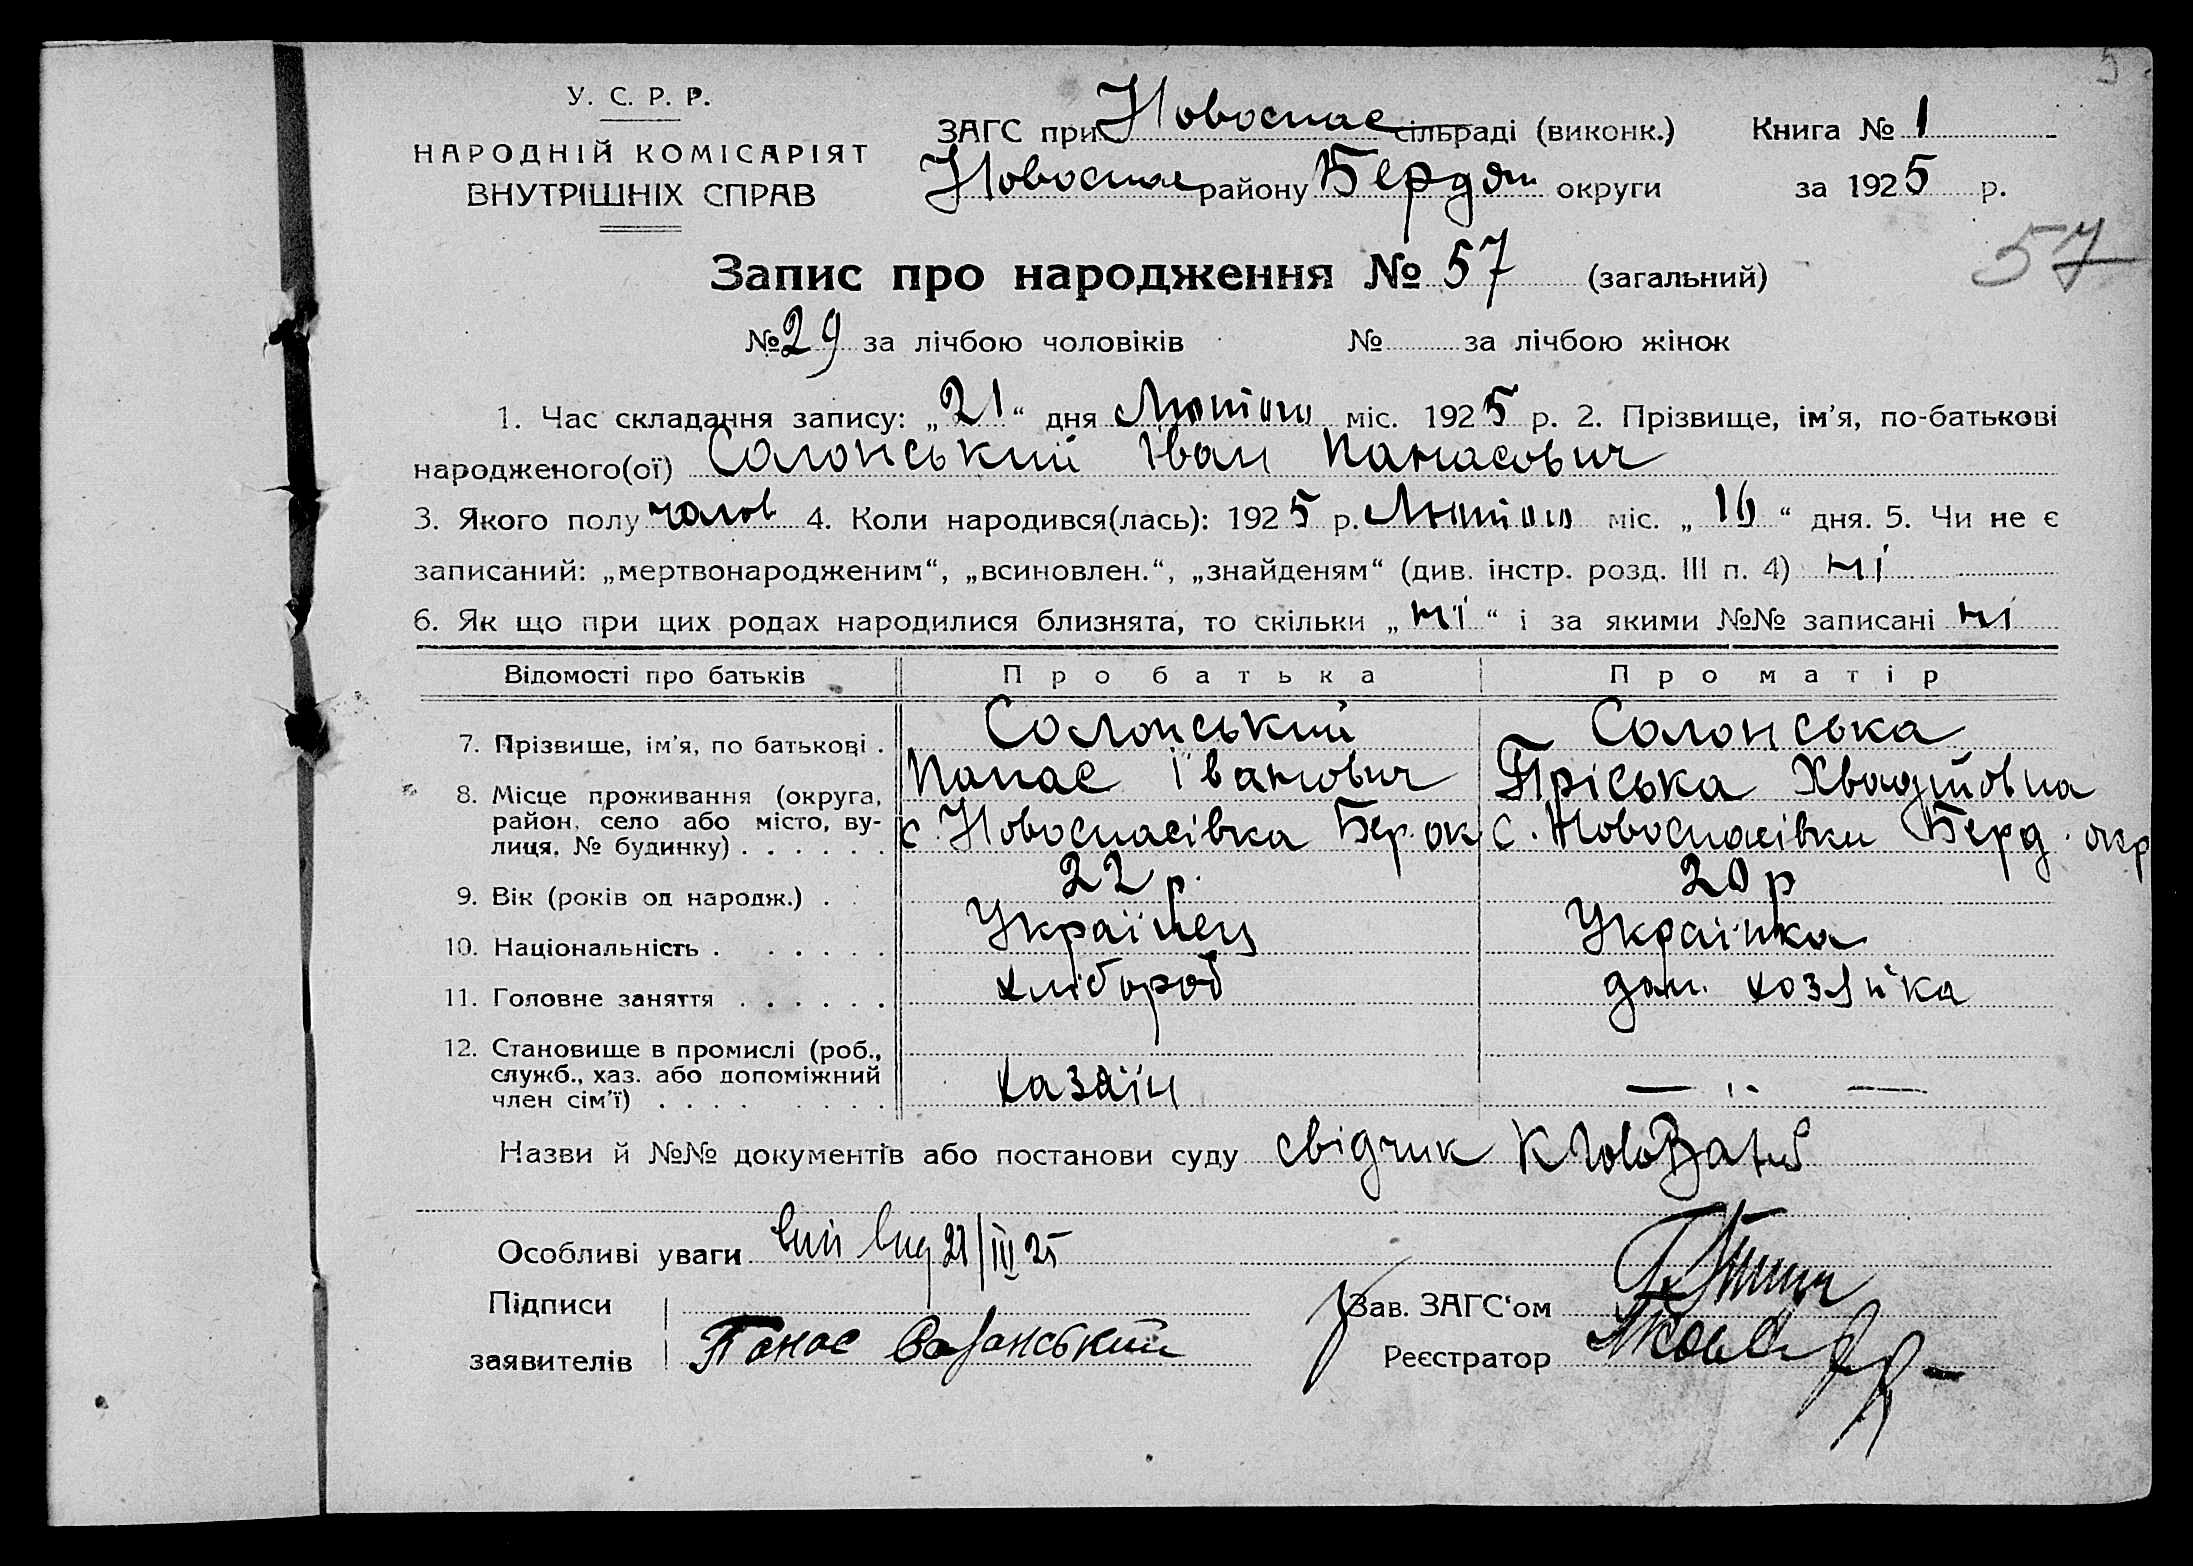 5
У. С. Р. Р.
НАРОДНІЙ КОМІСАРІЯТ
ВНУТРІШНІХ СПРАВ
ЗАГС при Новоспас сільраді (виконк.) Книга № 1
Новоспас району Бердян округи за 1925 р.
57
Запис про народження № 57 (загальний)
№ 29 за лічбою чоловіків № за лічбою жінок
1. Час складання запису: „21“ дня Лютого міс. 1925 р. 2. Прізвище, ім’я, по-батькові
народженого(ої) Солонський Іван Панасович
3. Якого полу чолов 4. Коли народився(лась): 1925 р. Лютого міс. „16“ дня. 5. Чи не є
записаний: „мертвонародженим“, „всиновлен.“, „знайденям“ (див. інстр. розд. III п. 4) ні
6. Як що при цих родах народилися близнята, то скільки „ні“ і за якими №№ записані ні
Відомості про батьків Про батька Про матір
7. Прізвище, ім’я, по батькові . Солонський Солонська
Панас Іванович Пріська Хвадтовна
8. Місце проживання (округа,
район, село або місто, ву-
лиця, № будинку) . . . . . . с. Новоспасівка Бер. ок с. Новоспасівки Берд. окр
9. Вік (років од народж.) . . 22 р. 20 р
10. Національність . . . . . . Українец Українка
11. Головне заняття . . . . . . хлібороб дом. хозяйка
12. Становище в промислі (роб.,
служб., хаз. або допоміжний
член сім’ї) . . . . . . . . хазяїн — „ —
Назви й №№ документів або постанови суду свідчик
Особливі уваги вид 21/III 25
Підписи
заявителів Панас Солонський
Зав. ЗАГС‘ом
Реєстратор